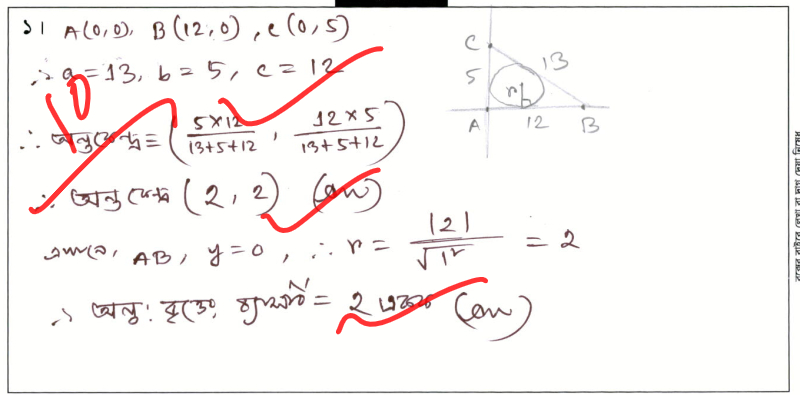 ১। A(0,0), B(12,0), C(0,5)
∴ a=13, b=5, c=12
10
∴ অন্তঃকেন্দ্র = (5×12/13+5+12, 12×5/13+5+12)
∴ অন্তঃকেন্দ্র (2, 2) (Ans)
এখানে, AB, y=0, ∴ r = |2|/√1² = 2
∴ অন্তঃ বৃত্তের ব্যাসার্ধ = 2 একক (Ans)
C
5
13
r
A
12
B